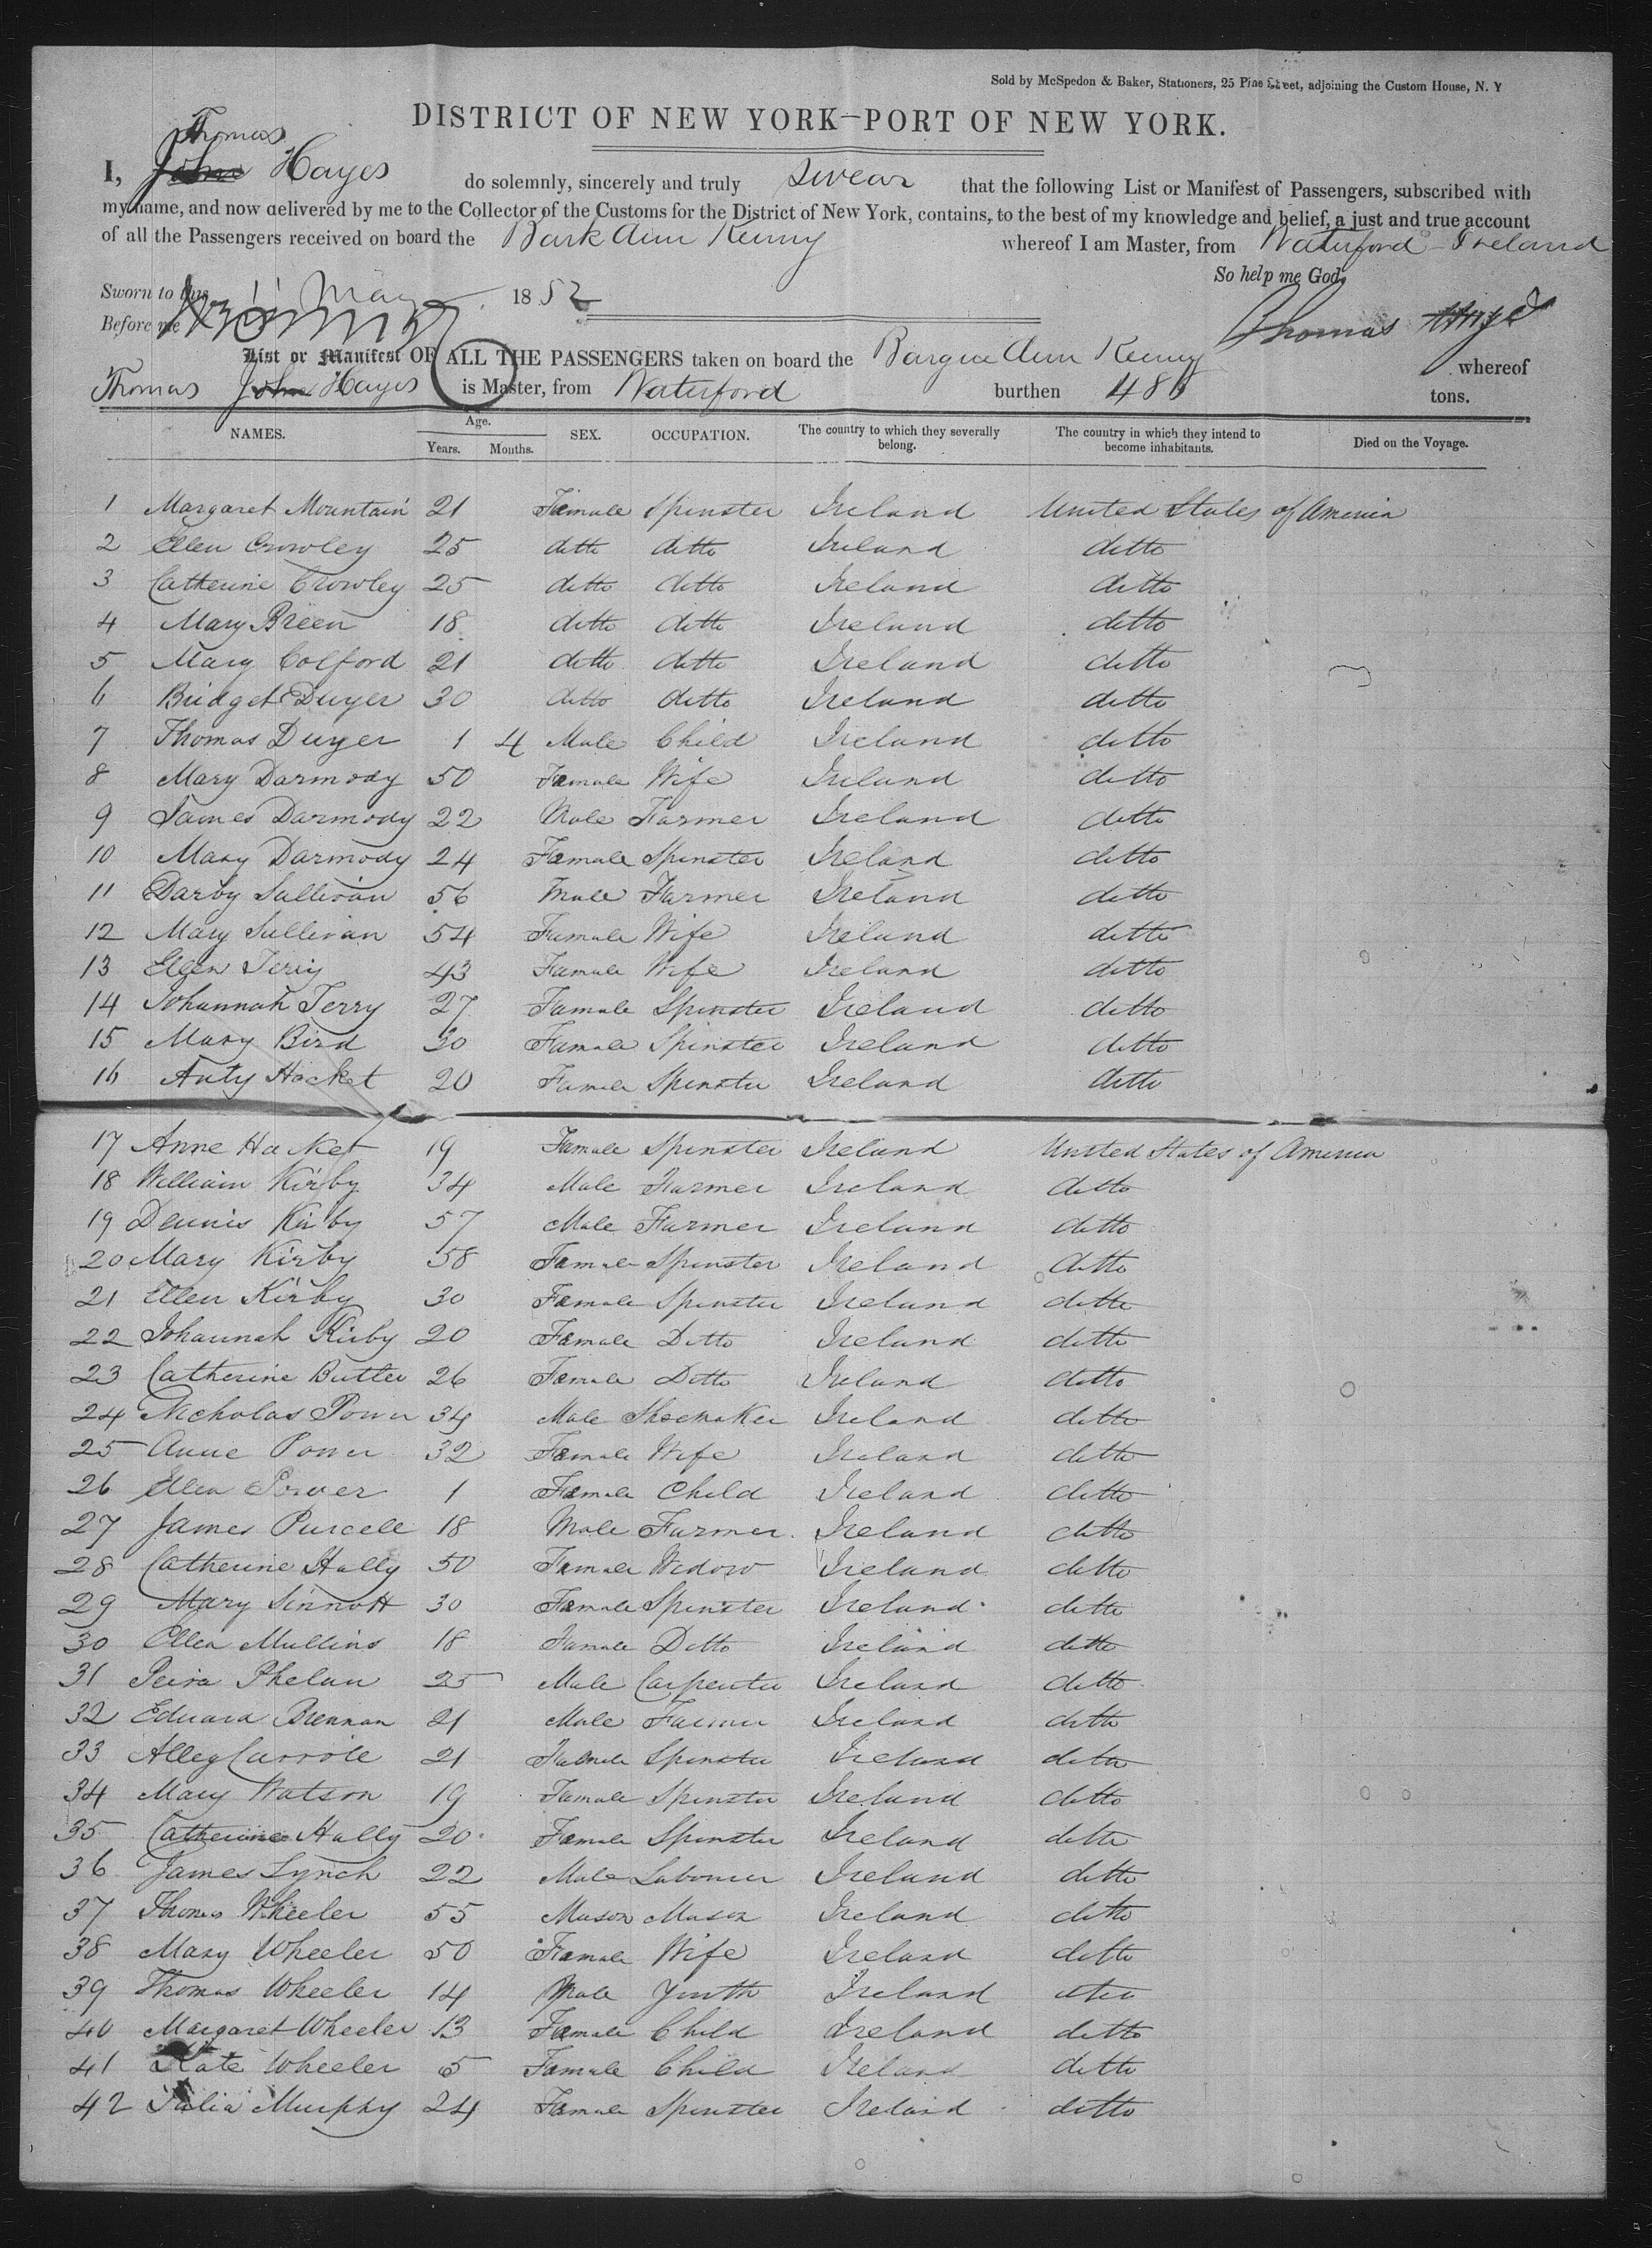 Sold by McSpedon & Baker, Stationers, 25 Pine Street, adjoining the Custom House, N. Y
DISTRICT OF NEW YORK—PORT OF NEW YORK.
Thomas
I, John Hayes do solemnly, sincerely and truly swear that the following List or Manifest of Passengers, subscribed with
my name, and now delivered by me to the Collector of the Customs for the District of New York, contains, to the best of my knowledge and belief, a just and true account
of all the Passengers received on board the Bark Ann Kenny whereof I am Master, from Waterford Ireland
So help me God.
Sworn to this 11 May 1852
Before me
Thomas Hayes
List or Manifest OF ALL THE PASSENGERS taken on board the Barque Ann Kenny whereof
Thomas John Hayes is Master, from Waterford burthen tons.
NAMES. Age. Years. Months. SEX. OCCUPATION. The country to which they severally belong. The country in which they intend to become inhabitants. Died on the Voyage.
1 Margaret Mountain 21 Female Spinster Ireland United States of America
2 Ellen Crowley 25 ditto ditto Ireland ditto
3 Catherine Crowley 25 ditto ditto Ireland ditto
4 Mary Breen 18 ditto ditto Ireland ditto
5 Mary Colford 21 ditto ditto Ireland ditto
6 Bridget Dwyer 30 ditto ditto Ireland ditto
7 Thomas Dwyer 1 4 Male Child Ireland ditto
8 Mary Darmody 50 Female Wife Ireland ditto
9 James Darmody 22 Male Farmer Ireland ditto
10 Mary Darmody 24 Female Spinster Ireland ditto
11 Darby Sullivan 56 Male Farmer Ireland ditto
12 Mary Sullivan 54 Female Wife Ireland ditto
13 Ellen Terry 43 Female Wife Ireland ditto
14 Johannah Terry 27 Female Spinster Ireland ditto
15 Mary Bird 30 Female Spinster Ireland ditto
16 Anty Hacket 20 Female Spinster Ireland ditto
17 Anne Hacket 19 Female Spinster Ireland United States of America
18 William Kirby 34 Male Farmer Ireland ditto
19 Dennis Kirby 57 Male Farmer Ireland ditto
20 Mary Kirby 58 Female Spinster Ireland ditto
21 Ellen Kirby 30 Female Spinster Ireland ditto
22 Johannah Kirby 20 Female Ditto Ireland ditto
23 Catherine Butler 26 Female Ditto Ireland ditto
24 Nicholas Power 34 Male Shoemaker Ireland ditto
25 Anne Power 32 Female Wife Ireland ditto
26 Ellen Power 1 Female Child Ireland ditto
27 James Purcell 18 Male Farmer Ireland ditto
28 Catherine Hally 50 Female Widow Ireland ditto
29 Mary Sinnott 30 Female Spinster Ireland ditto
30 Ellen Mullins 18 Female Ditto Ireland ditto
31 Phelan 25 Male Carpenter Ireland ditto
32 Edward Brennan 21 Male Farmer Ireland ditto
33 Alley Carrole 21 Female Spinster Ireland ditto
34 Mary Watson 19 Female Spinster Ireland ditto
35 Catherine Hally 20 Female Spinster Ireland ditto
36 James Lynch 22 Male Labourer Ireland ditto
37 Thomas Wheeler 55 Mason Mason Ireland ditto
38 Mary Wheeler 50 Female Wife Ireland ditto
39 Thomas Wheeler 14 Male Youth Ireland ditto
40 Margaret Wheeler 13 Female Child Ireland ditto
41 Kate Wheeler 5 Female Child Ireland ditto
42 Julia Murphy 24 Female Spinster Ireland ditto